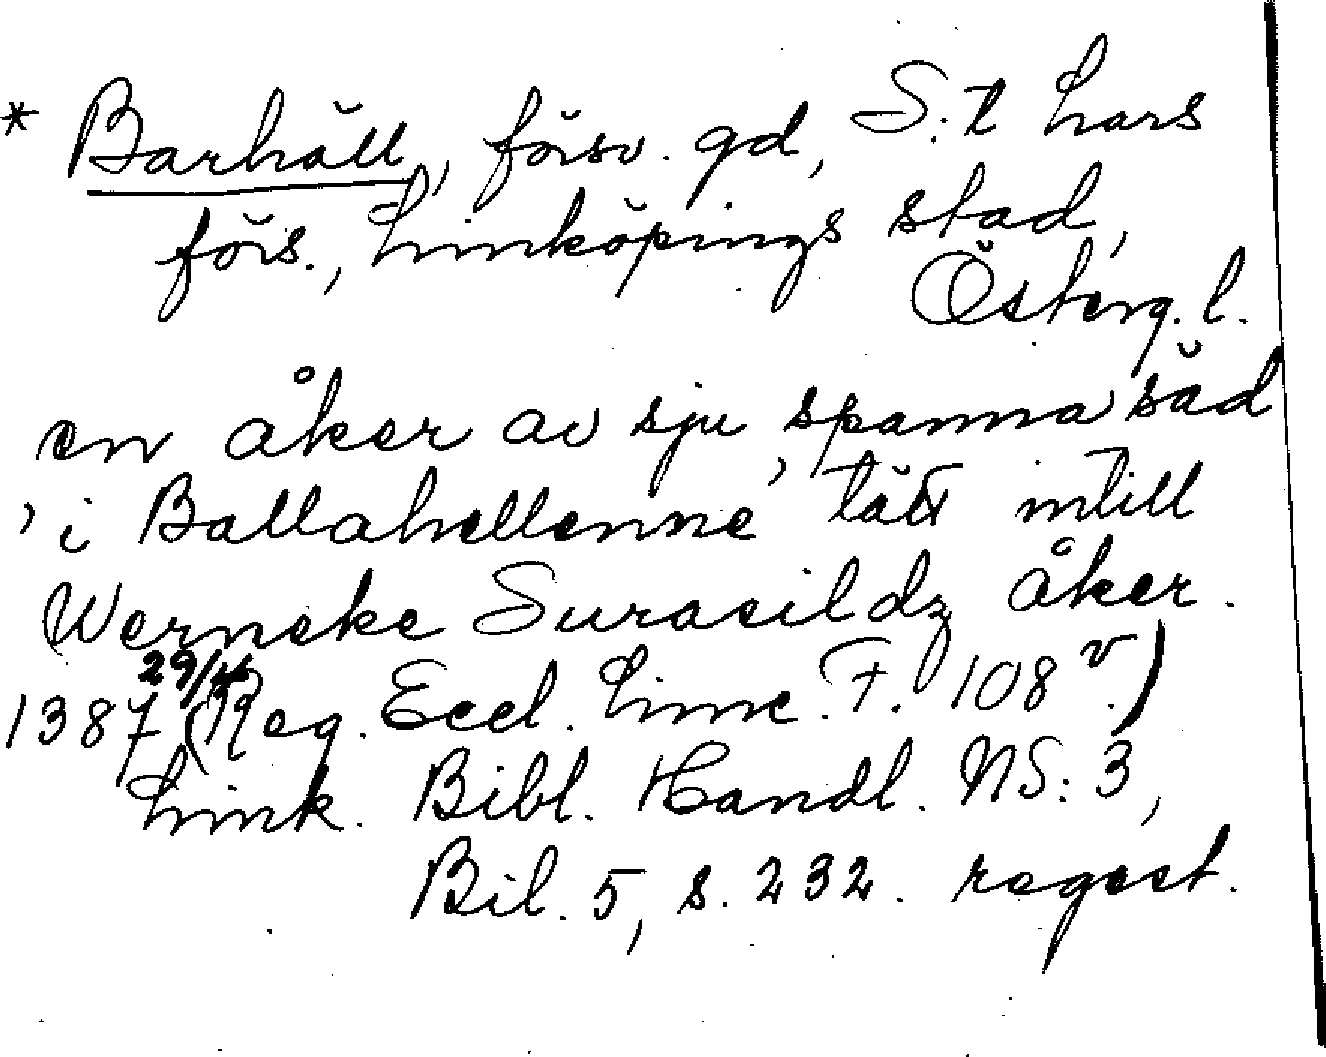 * Barhäll, försv. gd, S:t Lars
förs., Linköpings stad,
Österg. l.
en åker av sju spanna säd
'i Ballahellenne' tätt intill
Werneke Surasildz åker.
1387 29/4 (Reg. Eccl. Linc. F. 108 v.)
Link. Bibl. Handl. NS: 3,
Bil. 5, s. 232. regest.